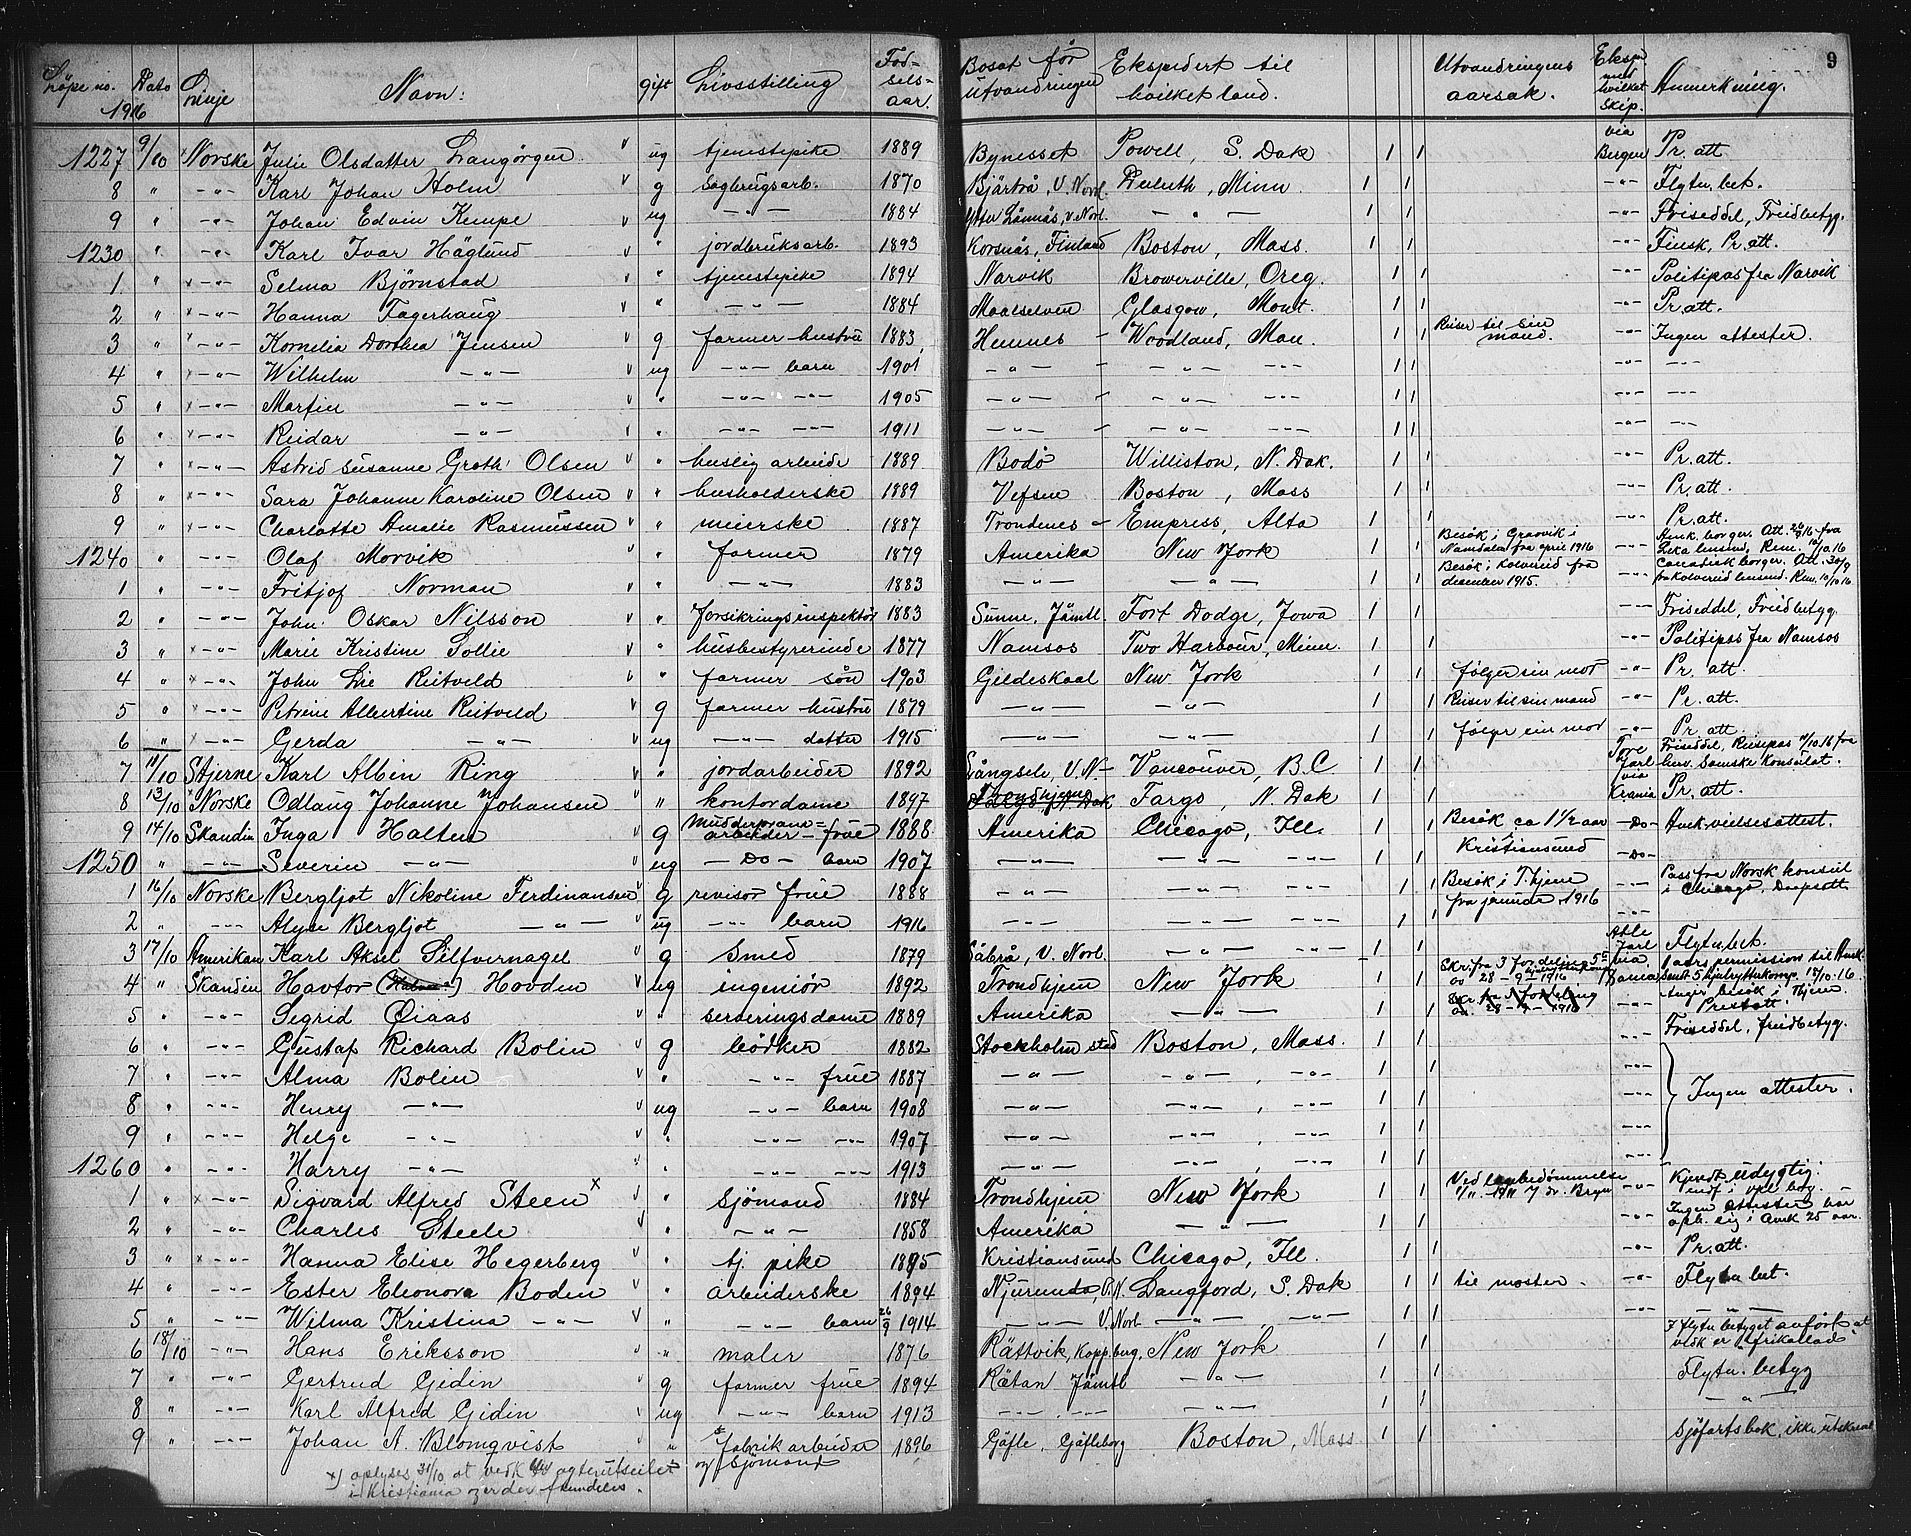 Løpe no. Dato 1916 Linje Navn: gift Livsstilling Fødselsaar. Bosat før utvandringen Ekspedert til hvilket land. Utvandringens aarsak. Eksp. med hvilket skip. Anmerkning. 9
1227 9/10 × Norske Julie Olsdatter Langørgen v ug tjenestepike 1889 Bynesset Powell, S. Dak 1 1 via Bergen Pr. att
8 " -"- Karl Johan Holm v g sagbrugsarb. 1870 Bjärtrå, V. Norrl. Duluth, Minn 1 1 -"- Flytn. bet.
9 " -"- Johan Edvin Kempe v ug -"- 1884 Ytter Lännäs, V. Norl. -"- 1 1 -"- Friseddel, Friedbetyg.
1230 " -"- Karl Ivar Häglund v " jordbruksarb. 1893 Korsnäs, Finland Boston, Mass. 1 1 -"- Finsk, Pr. att.
1 " × -"- Selma Bjørnstad v " tjenestepike 1894 Narvik Browerville, Oreg. 1 1 -"- Politipas fra Narvik
2 " × -"- Hanna Fagerhaug v " -"- 1884 Maalselven Glasgow, Mont. 1 1 -"- Pr. att.
3 " × -"- Kornelia Dorthea Jensen v g farmer hustru 1883 Hemnes - Woodland, Man. 1 1 Reiser til sin mand. -"- Ingen attester.
4 " × -"- Wilhelm -"- v ug -"- barn 1901 -"- - -"- -"- 1 1 -"- -"-
5 " × -"- Martin -"- v " -"- -"- 1905 -"- - -"- -"- 1 1 -"- -"-
6 " × -"- Reidar -"- v " -"- -"- 1911 -"- - -"- -"- 1 1 -"- -"-
7 " × -"- Astrid Susanne Groth Olsen v " huslig arbeide 1889 Bodø Williston, N. Dak. 1 1 -"- Pr. att.
8 " × -"- Sara Johanne Karoline Olsen v " husholderske 1889 Vefsen Boston, Mass 1 1 -"- Pr. att.
9 " × -"- Charlotte Amalie Rasmussen v " meierske 1887 Trondenes - Empress, Alta 1 1 -"- Pr. att.
1240 " -"- Olaf Morvik v " farmer 1879 Amerika New York 1 1 Besøk i Gravvik i Namdalen fra april 1916 -"- Amk. borger. Att. 26/9 16 fra Leka lensmd. Rem. 10/10.16
1 " -"- Fritjof Norman v " -"- 1883 -"- -"- 1 1 Besøk i Kolvereid fra december 1915. -"- Canadisk borger. Att. 30/9 fra Kolvereid lensmd. Rem. 10/10 16
2 " -"- John Oskar Nilsson v " forsikringsinspektør 1883 Sunne, Jämtl Fort Dodge, Iowa 1 1 -"- Friseddel, Friedbetyg.
3 " × -"- Marie Kristine Sollie v " husbestyrerinde 1877 Namsos Two Harbour, Minn. 1 1 -"- Politipas fra Namsos
4 " × -"- John Lie Reitveld v " farmer søn 1903 Gildeskaal New York 1 1 følger sin mor -"- Pr. att.
5 " × -"- Petrine Albertine Reitveld v g farmer hustru 1879 -"- -"- 1 1 Reiser til sin mand -"- Pr. att.
6 " × -"- Gerda -"- v ug -"- datter 1915 -"- -"- 1 1 følger sin mor -"- Pr. att.
7 11/10 Stjerne Karl Albin Ring v " jordarbeider 1892 Långsele, V. N- Vancouver, B.C. 1 1 Tore Jarl via Friseddel, Reisepas 11/10.16 fra herv. Svenske Konsulat.
8 13/10 × Norske Odlaug Johanne Johansen v " kontordame 1897 Trondhjem Fargo, N. Dak 1 1 Krania Pr. att.
9 14/10 Skandin Inga Halten v g Mudderpram=arbeider - frue 1888 Amerika Chicago, Ill. 1 1 Besøk ca 1 1/2 aar i Kristiansund -Do- Avk. vielsesattest.
1250 " -"- Severin -"- ug -Do- barn 1907 -"- -"- -"- 1 1 -Do-
1 16/10 Norske Bergljot Nikoline Ferdinansen v g revisor frue 1888 -"- -"- -"- 1 1 Besøk i T.hjem fra januar 1916 -"- Pass fra Norsk konsul i Chicago, Daapsatt
2 " -"- Alyce Bergljot -"- v ug -"- barn 1916 -"- -"- -"- 1 1 -"-
3 17/10 Amerikan Karl Aksel Silfvernagel v g Smed 1879 Säbrå, V. Norl. -"- -"- 1 1 Atle Jarl via Flytn. bet.
4 " Skandin Havtor Hovden v ug ingeniør 1892 Trondhjem New York 1 1 Skr. fra 3 fordeling 5te av 28-9-1916 Kania 1 aars permission til Amk.
5 " -"- Sigrid Øiaas v " serveringsdame 1889 Amerika -"- 1 1 Anger besøk i Thjem. Prestatt.
6 " -"- Gustaf Richard Bolin v g bødker 1882 Stockholm stad Boston, Mass. 1 1 Friseddel, friedbetyg.
7 " -"- Alma Bolin v " -"- frue 1887 -"- -"-, -"- 1 1 -"-
8 " -"- Henry -"- v ug -"- barn 1908 -"- -"-, -"- 1 1 -"- Ingen attester.
9 " -"- Helge -"- v " -"- -"- 1907 -"- -"-, -"- 1 1 -"-
1260 " -"- Harry -"- v " -"- -"- 1913 -"- -"-, -"- 1 1 -"-
1 " × -"- Sigvard Alfred Steen × v " sjømand 1884 Trondhjem New York 1 1 -"- Kjendt udygtig.
2 " -"- Charles Steele v " -"- 1858 Amerika -"- 1 1 -"- Ingen attester har oph. sig i Amk 25 aar.
3 " × -"- Hanna Elise Hegerberg v " tj. pike 1895 Kristiansund Chicago, Ill. 1 1 -"- Pr. att.
4 " -"- Ester Eleonora Boden v " arbeiderske 1894 Njurunda, V. N. Langford, S. Dak 1 1 til moster - -"- Flytn bet.
5 " -"- Wilma Kristina -"- v " -"- barn 26/9 1914 -"- V. Norl. -"-, -"- 1 1 -"- -"-
6 18/10 -"- Hans Eriksson v " maler 1876 Rättvik, Koppbrg. New York 1 1 I flytn betyget anført at vedk er Afrikallad
7 " -"- Gertrud Gidin v g farmer frue 1894 Rätan Jämtl -"- 1 1 Flytn. betyg
8 " -"- Karl Alfred Gidin v ug -"- barn 1913 -"- -"- 1 1 -"-
9 " -"- Johan A. Blomqvist v " Fabrikarbeider og Sjømand 1896 Gäfle, Gäfleborg Boston, Mass 1 1 Sjøfartsbok, ikke utskrevet
×) oplyses 31/10 at vedk blev agterutseilet i Kristiania